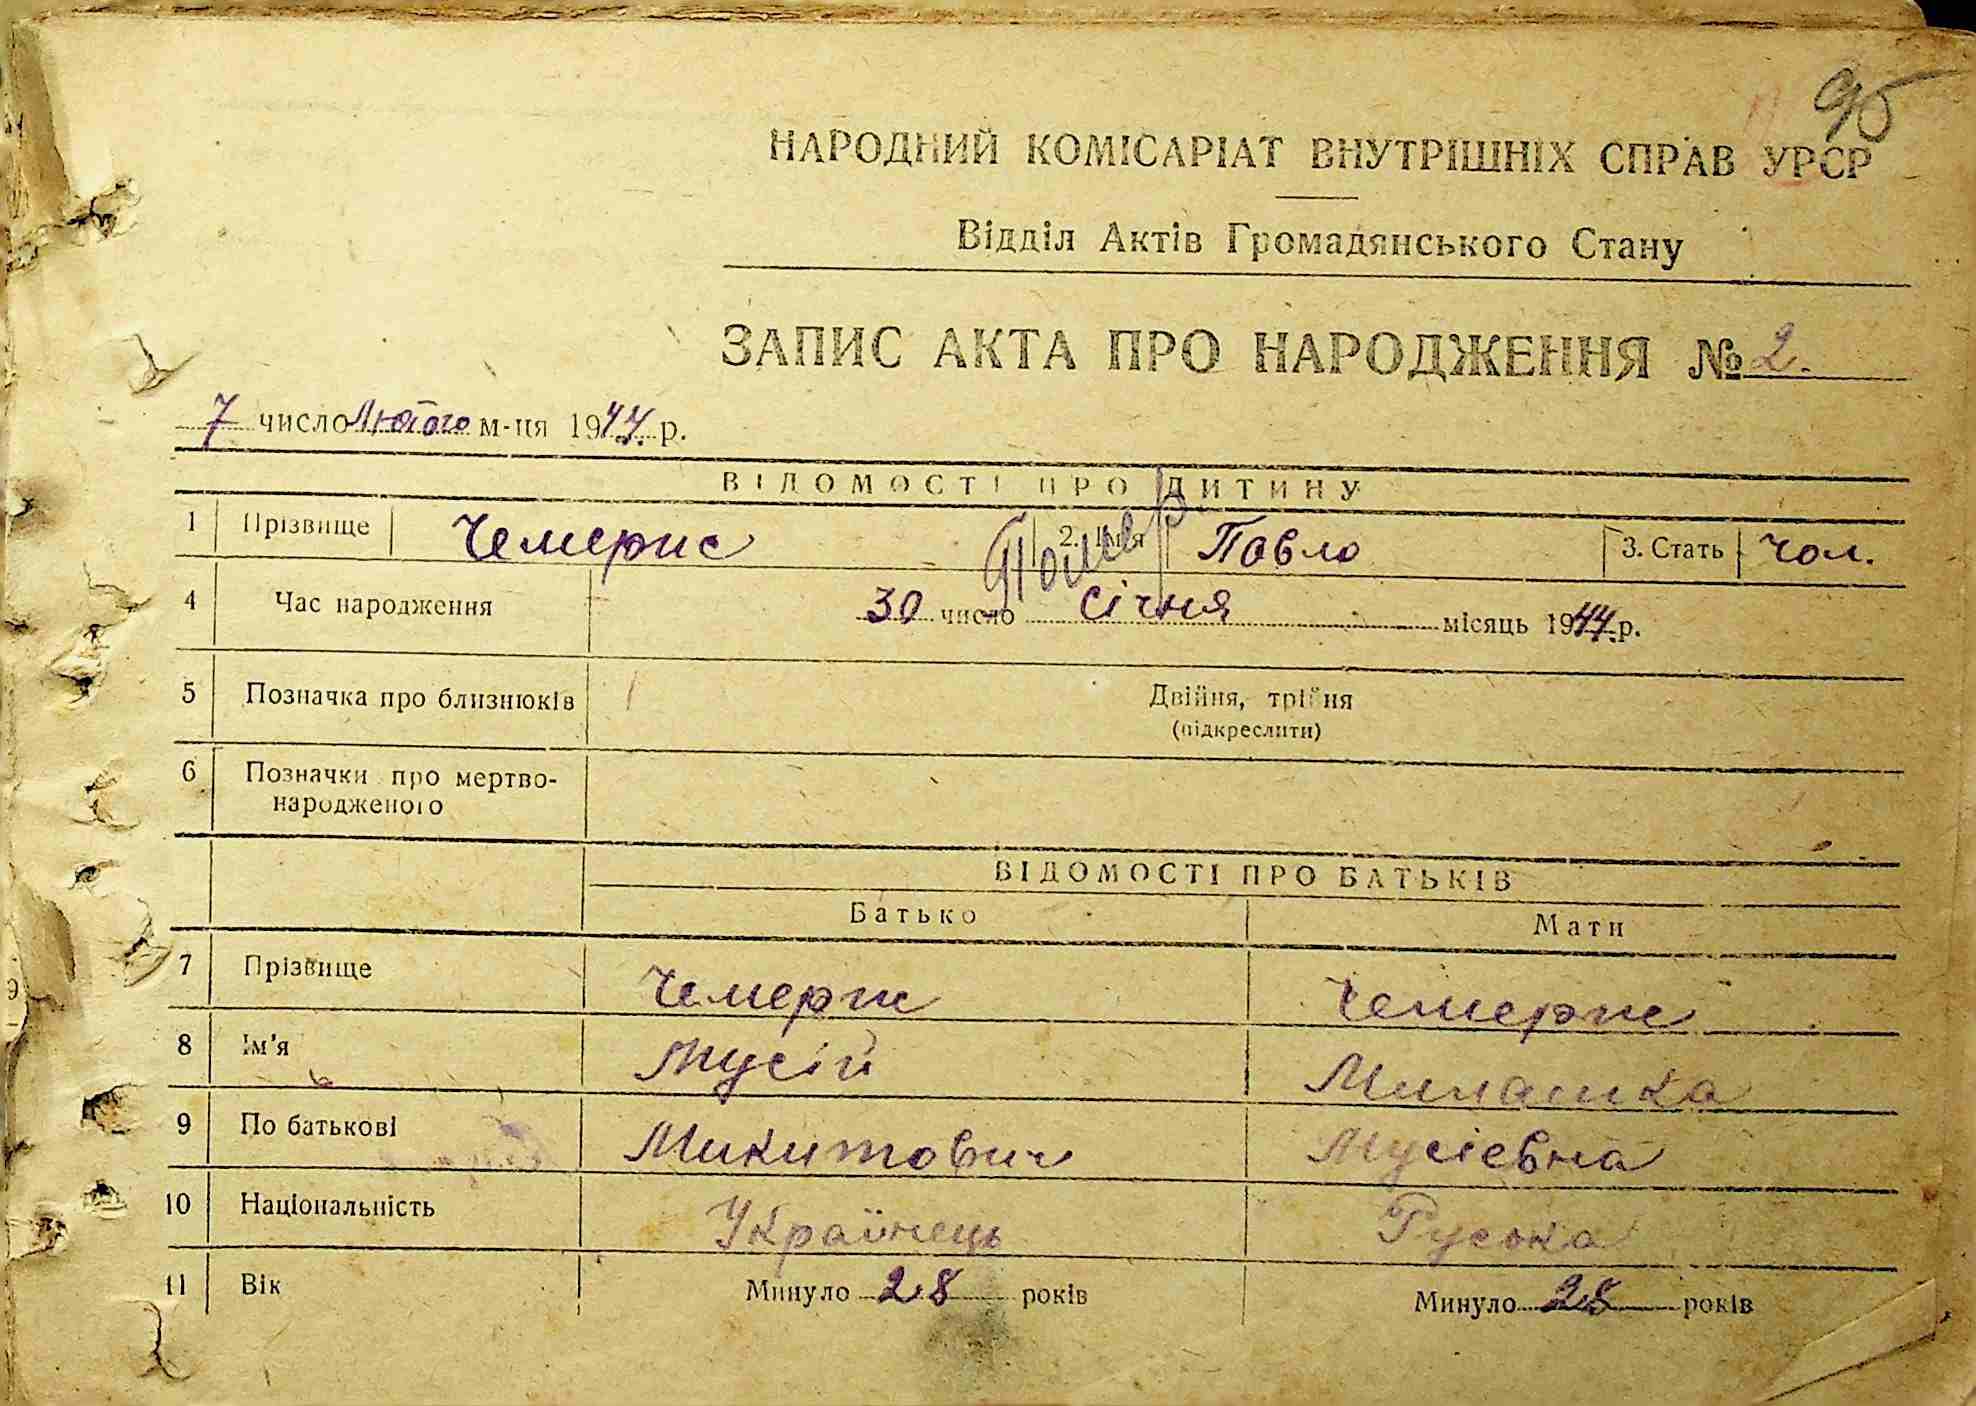 95
НАРОДНИЙ КОМІСАРІАТ ВНУТРІШНІХ СПРАВ УРСР
Відділ Актів Громадянського Стану
ЗАПИС АКТА ПРО НАРОДЖЕННЯ № 2.
7 число Лютого м-ця 1944 р.
ВІДОМОСТІ ПРО ДИТИНУ
1 Прізвище Чемерис 2. Ім'я Павло 3. Стать чол.
Помер
4 Час народження 30 число Січня місяць 1944 р.
5 Позначка про близнюків Двійня, трійня
(підкреслити)
6 Позначки про мертво-
народженого
ВІДОМОСТІ ПРО БАТЬКІВ
Батько Мати
7 Прізвище Чемерис Чемерис
8 Ім'я Мусій Милашка
9 По батькові Микитович Мусіевна
10 Національність Українець Руська
11 Вік Минуло 28 років Минуло 28 років